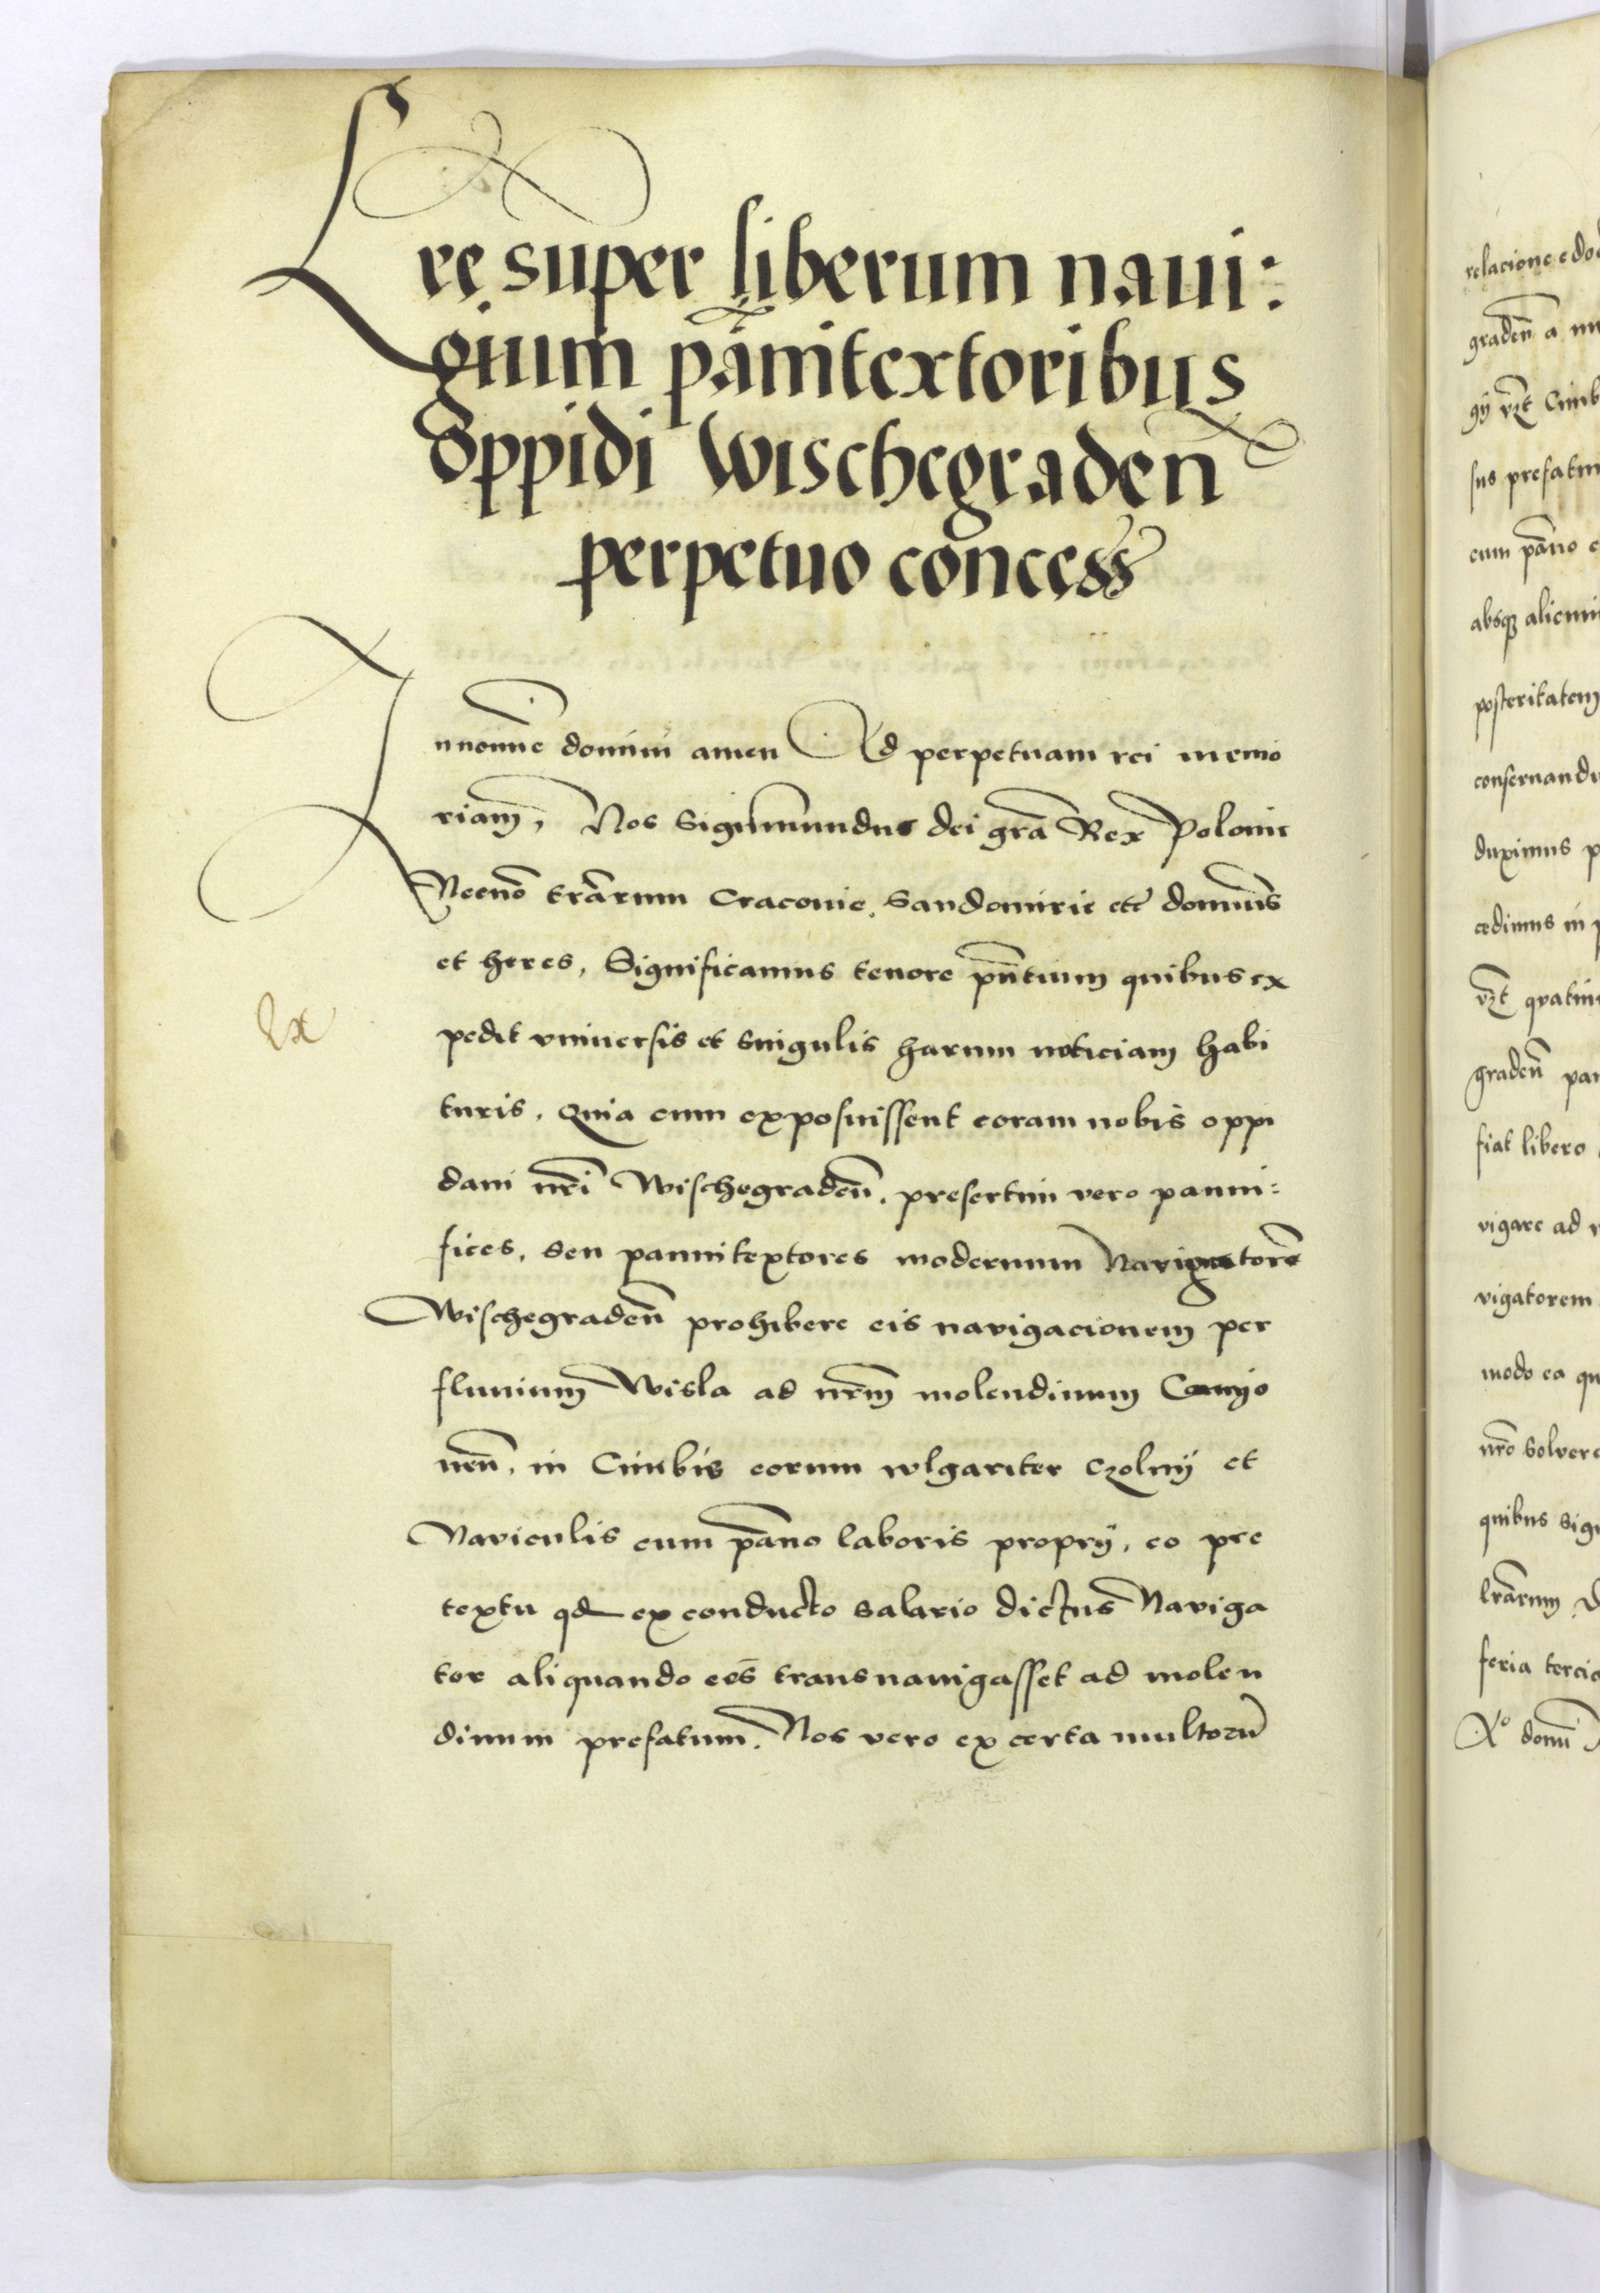 Lrẽ super liberum naui:
gium pãnitextoribus
Oppidi Wischegradeñ
perpetuo concess
In noie domini amen Ad perpetuam rei memo
riam, Nos Sigismundus dei grã Rex Polonie
Necnõ trãrum Cracovie, Sandomirie etc̃ dominus
et heres, Significamus tenore pñtium quibus ex
pedit vniuersis et singulis harum noticiam habi
turis, Quia cum exposuissent coram nobis oppi
dani nr̃i Wischegradeñ, presertim vero panni:
fices, seu pannitextores modernum Navigatorẽ
Wischegradeñ prohibere eis navigacionem per
fluuium Wisla ad nr̃m molendinum
neñ, in Cimbis eorum wlgariter czolny et
Naviculis cum pãno laboris proprij, eo pre
textu qd ex conducto salario dictus Naviga
tor aliquando eos transnauigasset ad molen
dinum prefatum. Nos vero ex certa multorũ
Ex
relacione edo
gradeñ a
gij vzt Cimb
sus prefatu
cum pãno
absqz alicui
posteritatem
conseruand
duximus p
cedimus in
vzt quatin
gradeñ pa
fiat libero
vigare ad
vigatorem
modo ea qu
nr̃o solvere
quibus sig
lrãrum
feria tercia
Xº domi